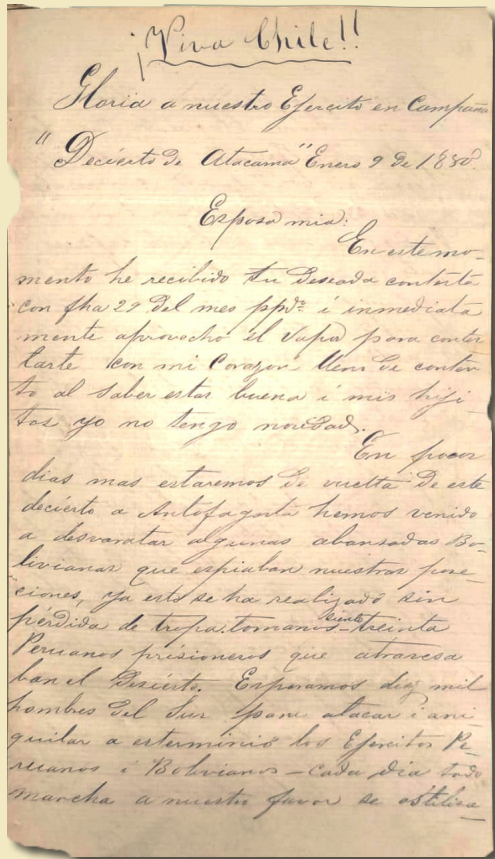 ¡Viva Chile!!
Gloria a nuestro Ejercito en Campaña
"Decierto de Atacama" Enero 9 de 1880.
Esposa mia:
En este mo-
mento he recibido tu deseada contesta
con fha 29 del mes ppdo. i inmediata
mente aprovecho el vapor para contes
tarte con mi Corazon lleno de conten
to al saber estas buena i mis hiji-
tos yo no tengo novedad.
En pocos
dias mas estaremos de vuelta de este
decierto a Antofagasta hemos venido
a desvaratar algunas abansadas Bo-
livianas que espiaban nuestras pose-
ciones, ya esto se ha realizado sin
pérdida de tropa. tomamos siento treinta
Peruanos prisioneros que atravesa
ban el Desierto. Esperamos diez mil
hombres del Sur para atacar i ani
quilar a esterminio los Ejercitos Pe-
ruanos i Bolivianos - cada dia todo
marcha a nuestro favor se ostiliza